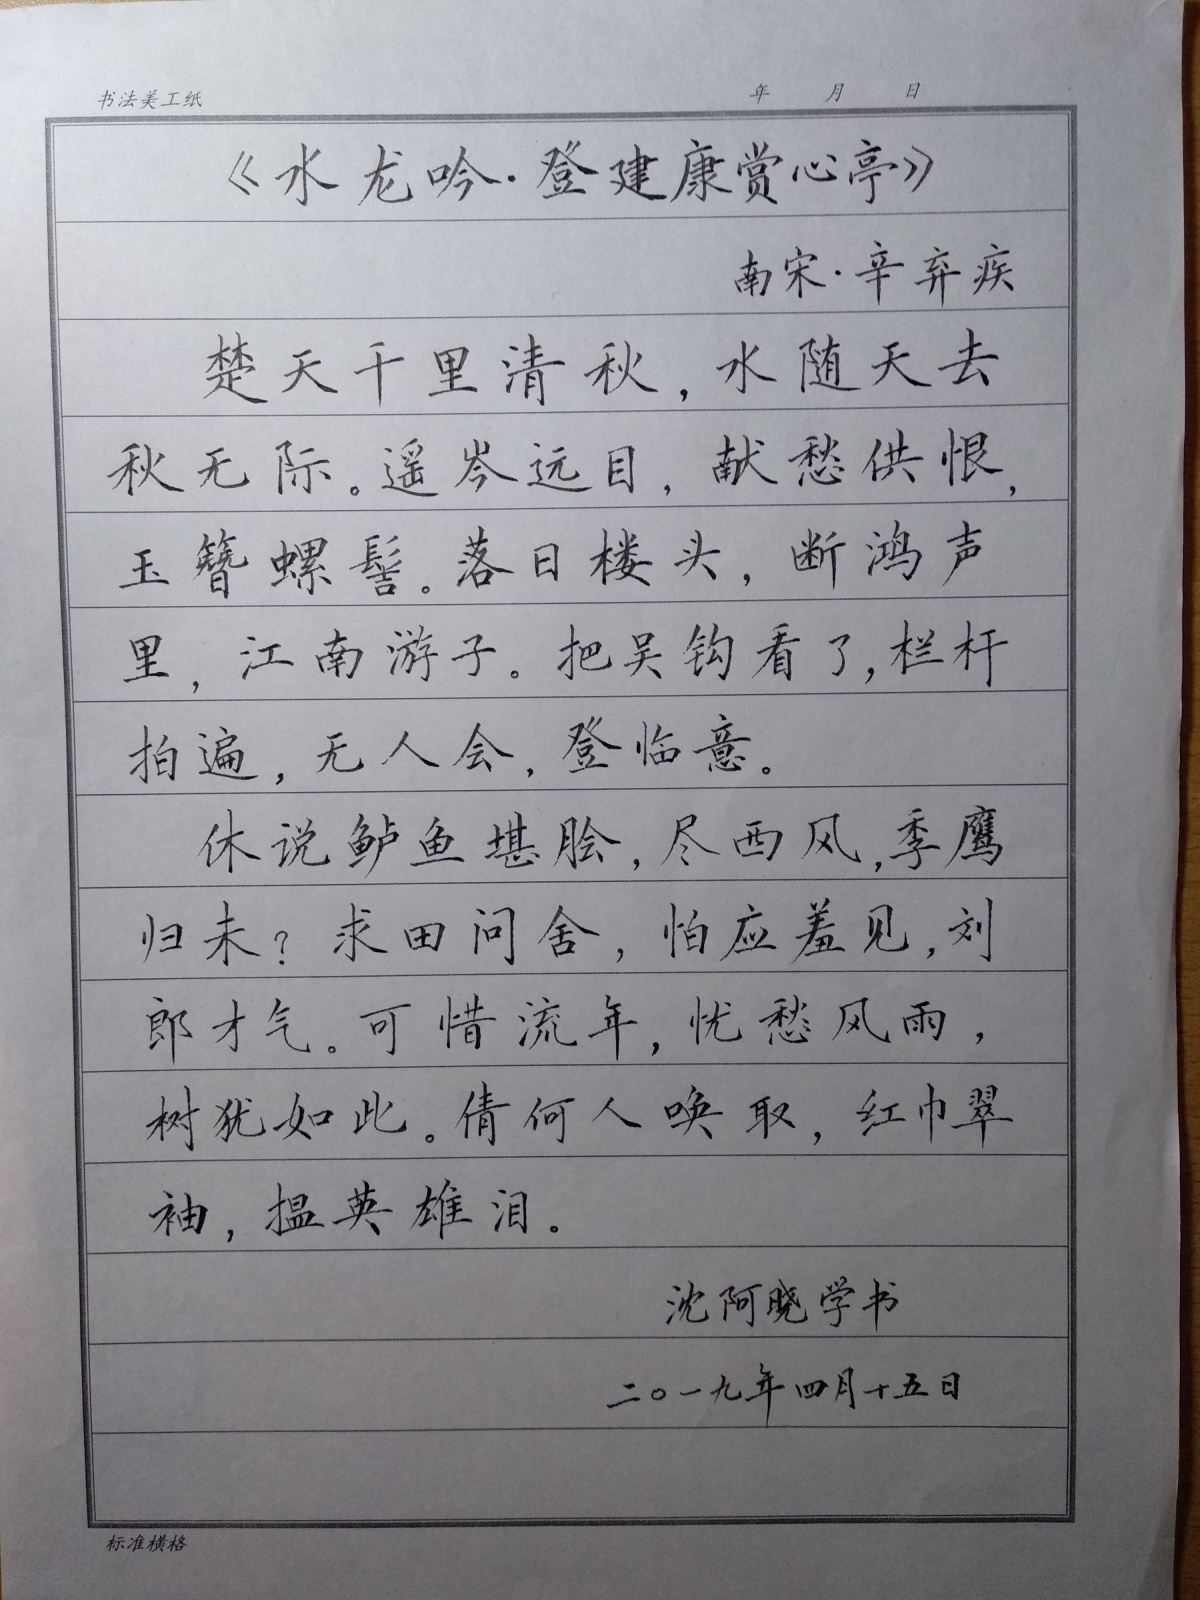 书法美工纸 年 月 日
《水龙吟·登建康赏心亭》
南宋·辛弃疾
楚天千里清秋，水随天去
秋无际。遥岑远目，献愁供恨，
玉簪螺髻。落日楼头，断鸿声
里，江南游子。把吴钩看了，栏杆
拍遍，无人会，登临意。
休说鲈鱼堪脍，尽西风，季鹰
归未？求田问舍，怕应羞见，刘
郎才气。可惜流年，忧愁风雨，
树犹如此。倩何人唤取，红巾翠
袖，揾英雄泪。
沈阿晓学书
二〇一九年四月十五日
标准横格